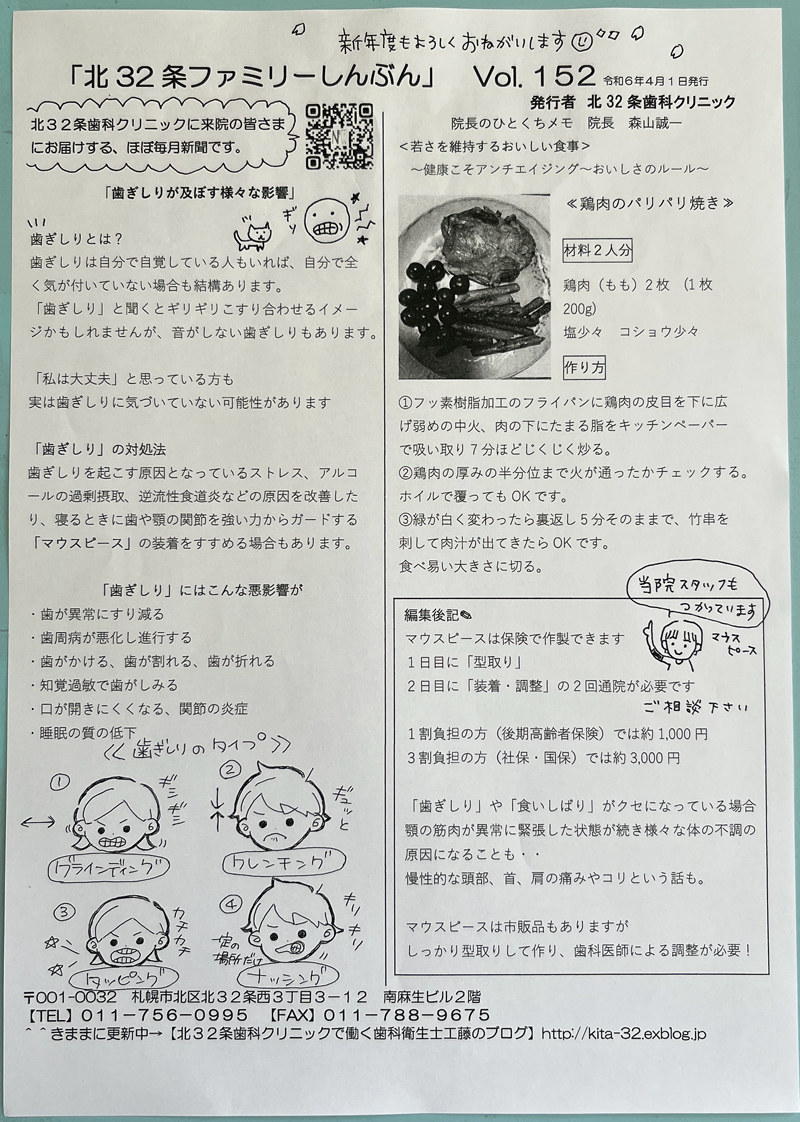 新年度もよろしくおねがいします
「北32条ファミリーしんぶん」 Vol. 152 令和6年4月1日発行
北３２条歯科クリニックに来院の皆さま
にお届けする、ほぼ毎月新聞です。
「歯ぎしりが及ぼす様々な影響」
ギリ
歯ぎしりとは？
歯ぎしりは自分で自覚している人もいれば、自分で全
く気が付いていない場合も結構あります。
「歯ぎしり」と聞くとギリギリこすり合わせるイメー
ジかもしれませんが、音がしない歯ぎしりもあります。
「私は大丈夫」と思っている方も
実は歯ぎしりに気づいていない可能性があります
「歯ぎしり」の対処法
歯ぎしりを起こす原因となっているストレス、アルコ
ールの過剰摂取、逆流性食道炎などの原因を改善した
り、寝るときに歯や顎の関節を強い力からガードする
「マウスピース」の装着をすすめる場合もあります。
「歯ぎしり」にはこんな悪影響が
・歯が異常にすり減る
・歯周病が悪化し進行する
・歯がかける、歯が割れる、歯が折れる
・知覚過敏で歯がしみる
・口が開きにくくなる、関節の炎症
・睡眠の質の低下
≪歯ぎしりのタイプ≫
① ギシギシ
グラインディング
② ギュッと
クレンチング
③ カチカチ
タッピング
④ キリキリ
一定の
場所だけ
ナッシング
発行者 北32条歯科クリニック
院長のひとくちメモ 院長 森山誠一
＜若さを維持するおいしい食事＞
～健康こそアンチエイジング～おいしさのルール～
≪鶏肉のパリパリ焼き≫
材料２人分
鶏肉（もも）２枚 （１枚
200g）
塩少々 コショウ少々
作り方
①フッ素樹脂加工のフライパンに鶏肉の皮目を下に広
げ弱めの中火、肉の下にたまる脂をキッチンペーパー
で吸い取り７分ほどじくじく炒る。
②鶏肉の厚みの半分位まで火が通ったかチェックする。
ホイルで覆ってもOKです。
③縁が白く変わったら裏返し５分そのままで、竹串を
刺して肉汁が出てきたらOKです。
食べ易い大きさに切る。
当院スタッフも
つかっています
マウス
ピース
編集後記✎
マウスピースは保険で作製できます
１日目に「型取り」
２日目に「装着・調整」の２回通院が必要です
ご相談下さい
１割負担の方（後期高齢者保険）では約1,000円
３割負担の方（社保・国保）では約3,000円
「歯ぎしり」や「食いしばり」がクセになっている場合
顎の筋肉が異常に緊張した状態が続き様々な体の不調の
原因になることも・・
慢性的な頭部、首、肩の痛みやコリという話も。
マウスピースは市販品もありますが
しっかり型取りして作り、歯科医師による調整が必要！
〒001-0032 札幌市北区北３２条西３丁目３－１２ 南麻生ビル２階
【TEL】011-756-0995 【FAX】011-788-9675
＾＾きままに更新中→【北３２条歯科クリニックで働く歯科衛生士工藤のブログ】http://kita-32.exblog.jp